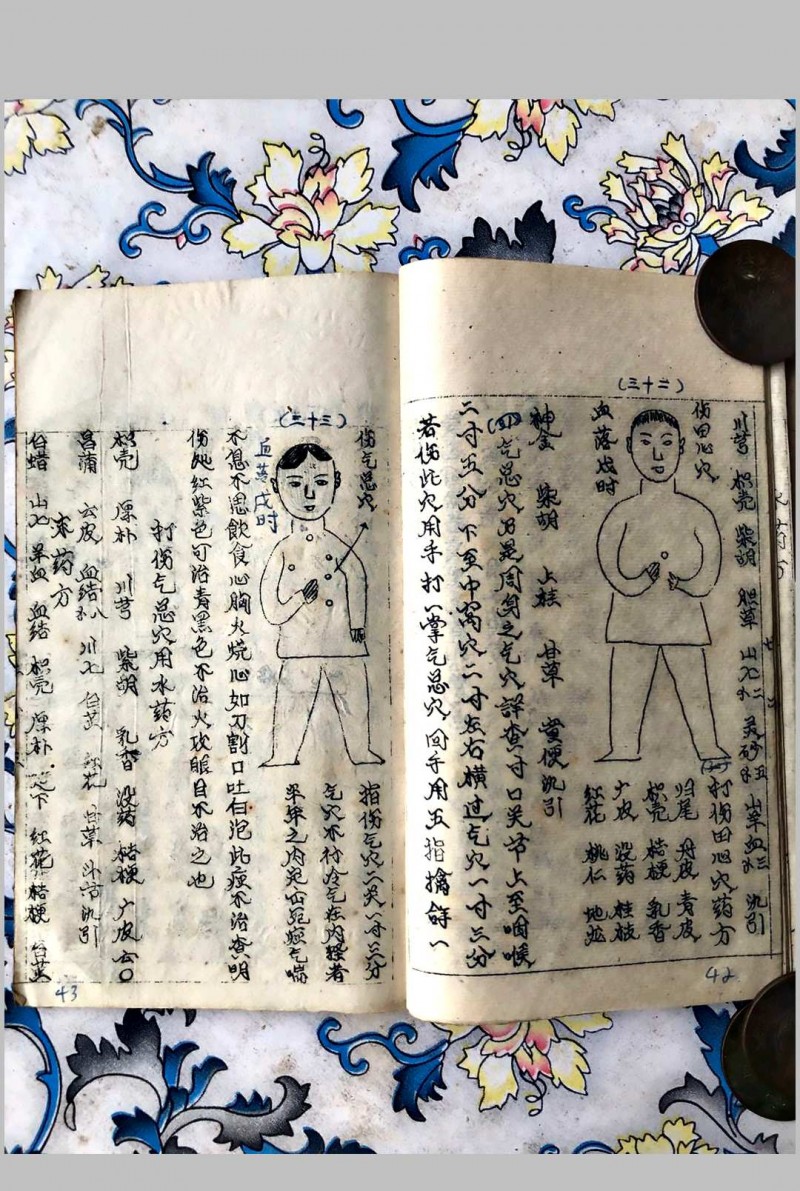 川芎 枳壳 柴胡 胆草 山七 灵砂 山羊血 沉引
(三十二)
伤田心穴
血落戌时
打伤田心穴药方
归尾 丹皮 青皮
枳壳 桔梗 乳香
广皮 没药 桂枝
红花 桃仁 地龙
神金 柴胡 上桂 甘草 童便 沉引
气总穴乃是周身之气穴 详查寸口关节上至咽喉
二寸五分 下至中窝穴二寸左右横过乞穴一寸三分
若伤此穴用手打一掌气总穴 回手用五指擒
42
(三十三)
伤气总穴
血落戌时
指伤气穴二关一寸三分
气穴不行冷气在内
半年之内
不思飲食心胸火烧心如刀割口吐白泡此症不治查明
伤处红紫色可治青黑色不治火攻眼目不治之也
打伤气总穴用水药方
枳壳 厚朴 川芎 柴胡 乳香 没药 桔梗 广皮
菖蒲 云皮 血结 川七 红花 甘草 沉引
末药方
白蜡 山七 血结 枳壳 厚朴 红花 桔梗
43